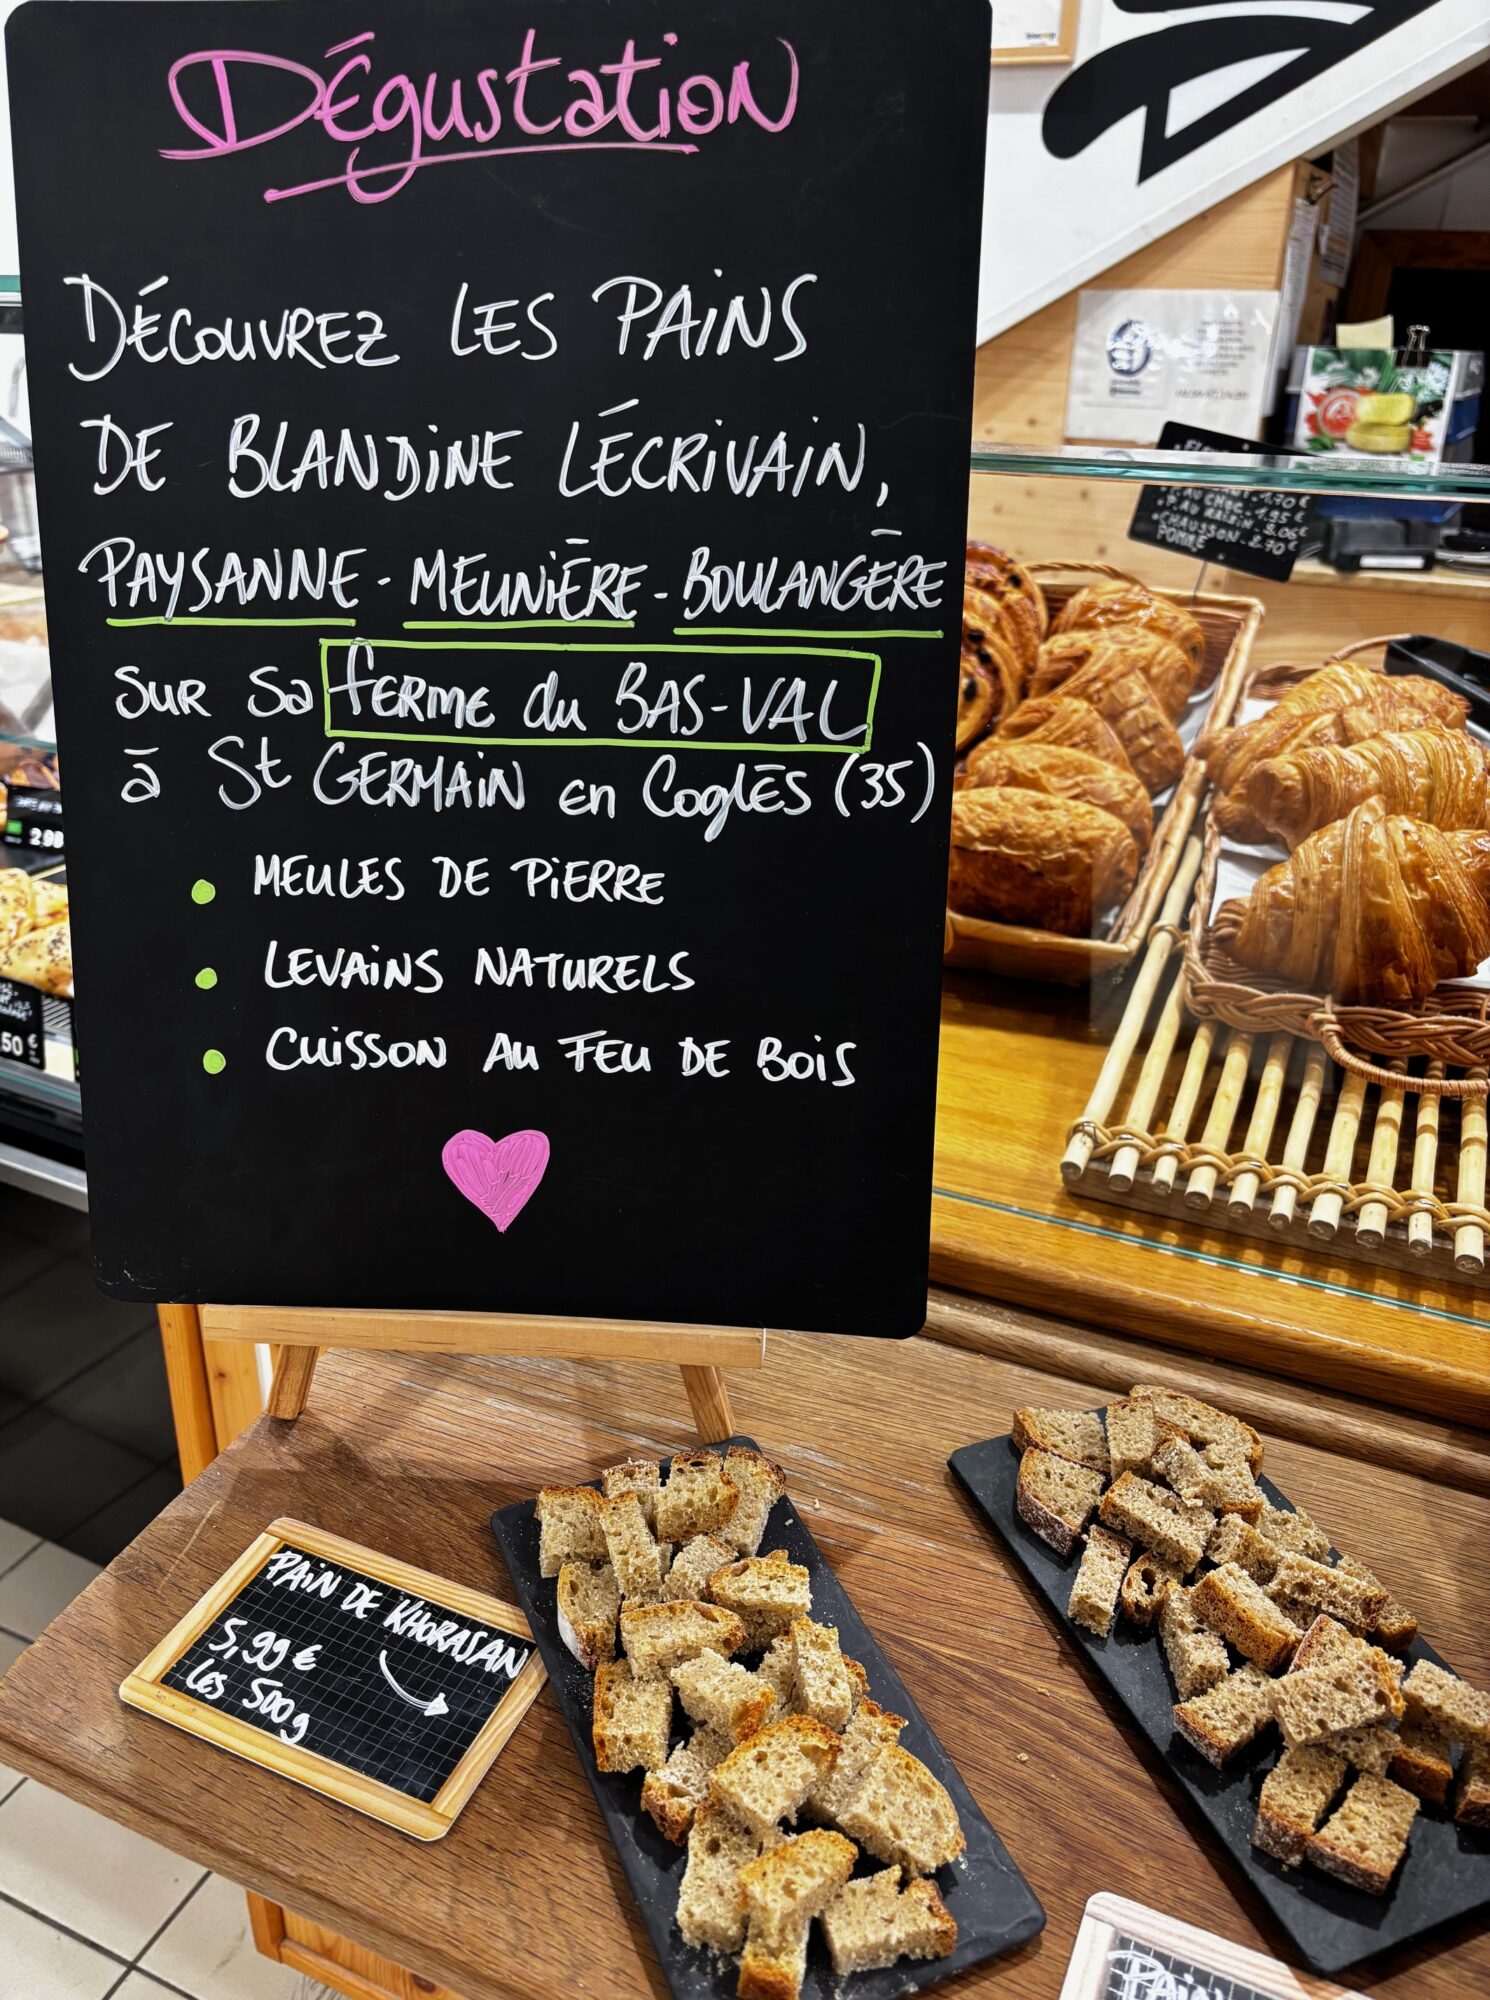 Dégustation
DÉCOUVREZ LES PAINS
DE BLANDINE LÉCRIVAIN,
PAYSANNE - MEUNIÈRE - BOULANGÈRE
SUR Sa FERME du BAS-VAL
à St GERMAIN en Coglès (35)
• MEULES DE PIERRE
• LEVAINS NATURELS
• CUISSON AU FEU DE BOIS
PAIN DE KHORASAN
5,99€
les 500g
PAIN
P. AU CHOC. 1,95 €
P. AU RAISIN 2,06€
CHAUSSON 2,70€
POMME
2,90
,50 €